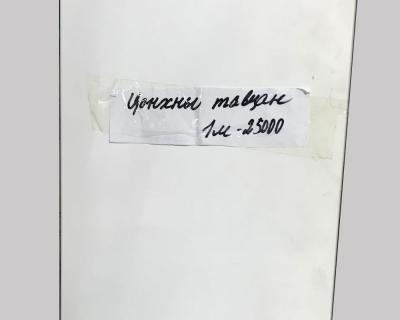 Цонхны тавцан
1м - 25000